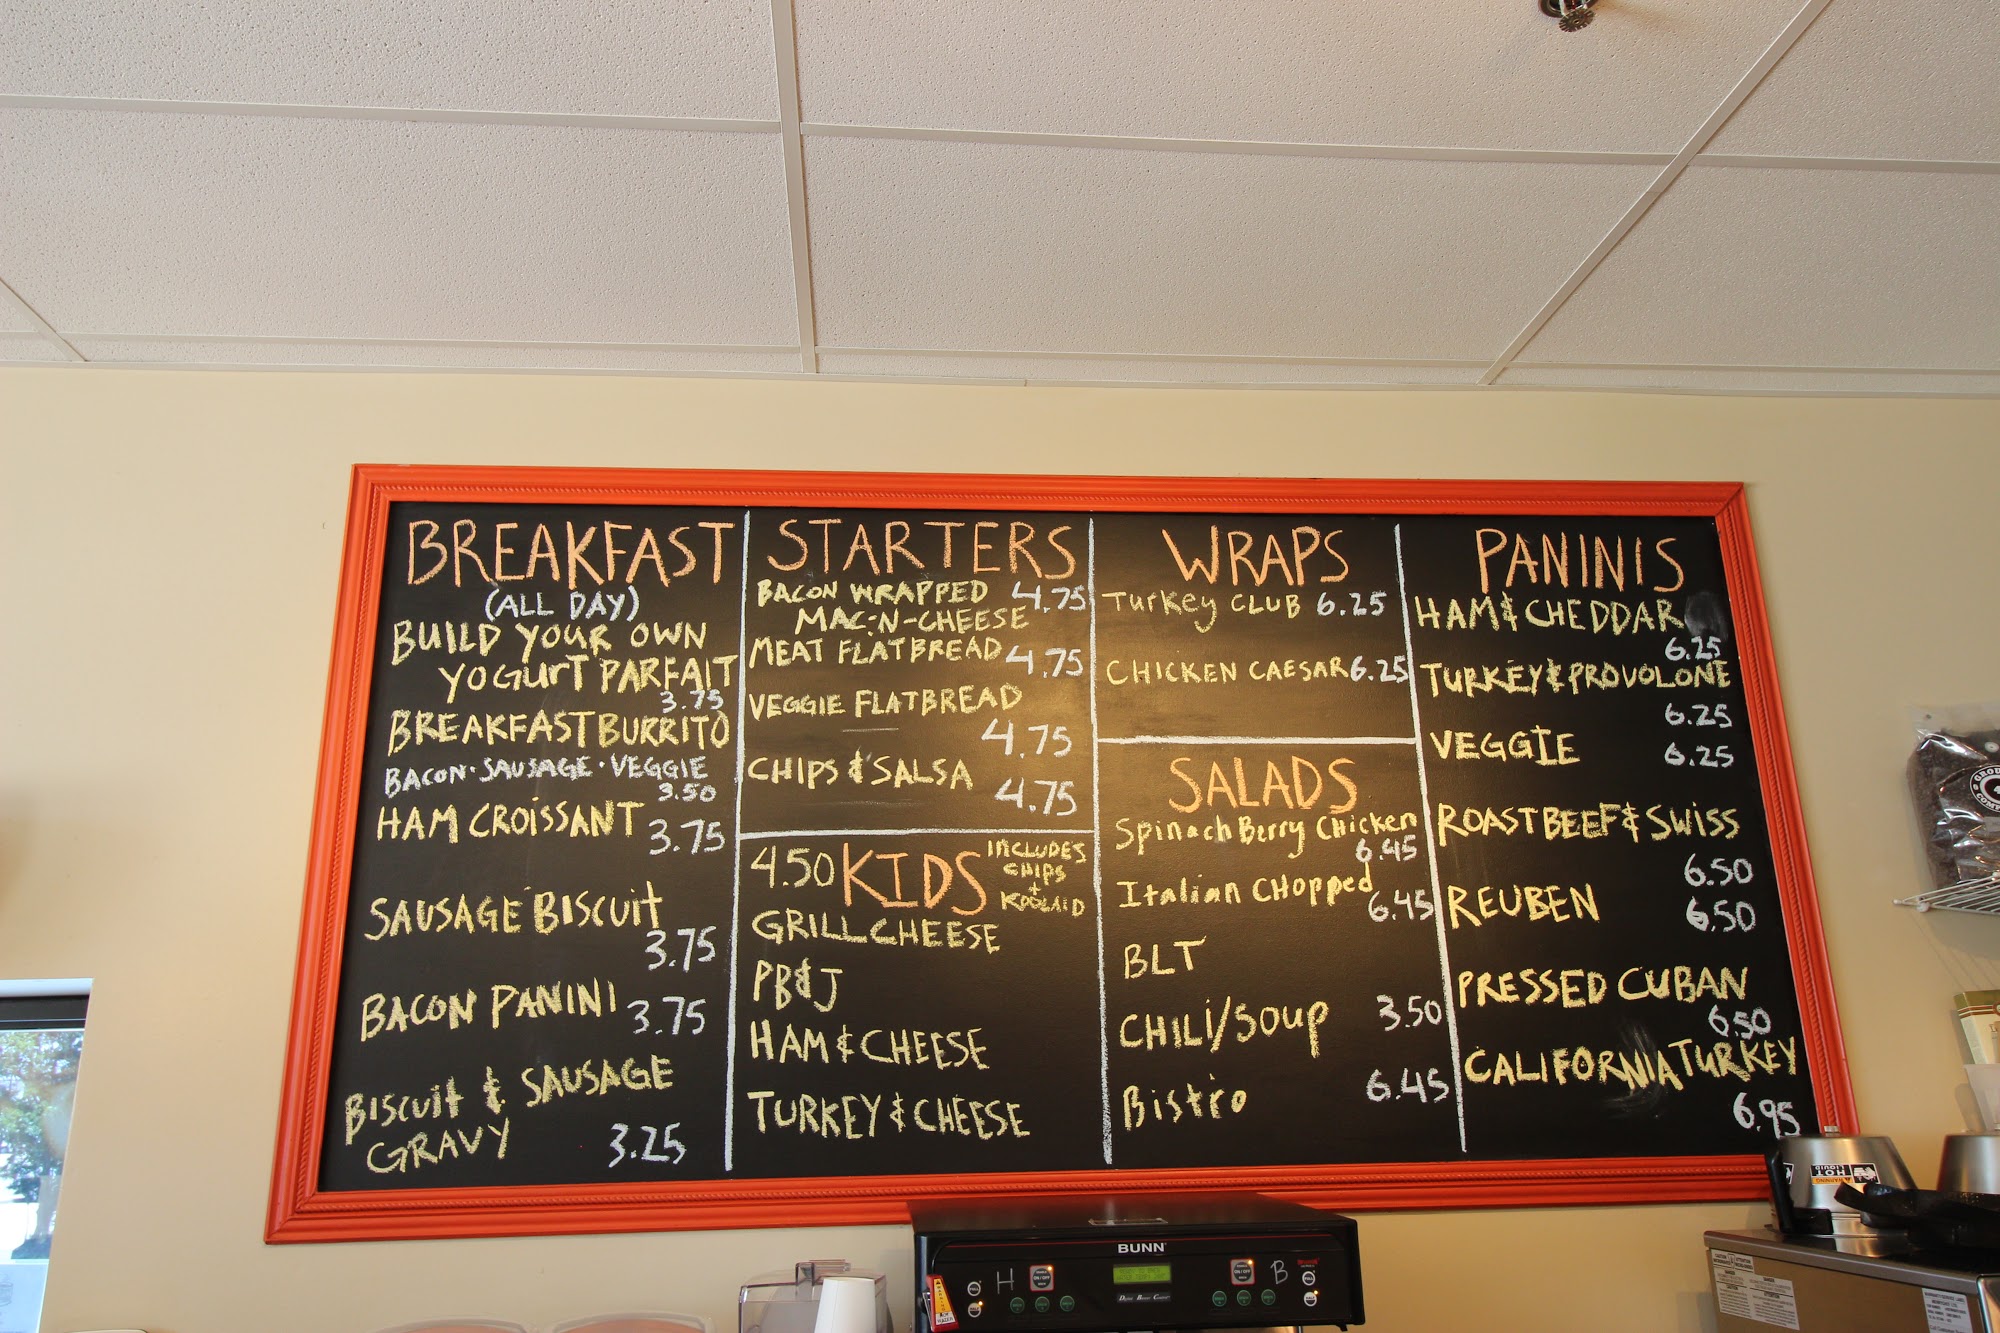 BREAKFAST
(ALL DAY)
BUILD YOUR OWN
YOGURT PARFAIT
3.75
BREAKFAST BURRITO
BACON·SAUSAGE·VEGGIE
3.50
HAM CROISSANT
3.75
SAUSAGE BISCUIT
3.75
BACON PANINI
3.75
BISCUIT & SAUSAGE
GRAVY
3.25
STARTERS
BACON WRAPPED 4.75
MAC-N-CHEESE
MEAT FLATBREAD 4.75
VEGGIE FLATBREAD
4.75
CHIPS & SALSA
4.75
4.50 KIDS
INCLUDES
CHIPS
+
KOOLAID
GRILL CHEESE
PB&J
HAM & CHEESE
TURKEY & CHEESE
WRAPS
Turkey CLUB 6.25
CHICKEN CAESAR 6.25
SALADS
Spinach Berry Chicken
6.45
Italian CHopped
6.45
BLT
CHILI/Soup 3.50
Bistro 6.45
PANINIS
HAM & CHEDDAR
6.25
TURKEY & PROVOLONE
6.25
VEGGIE 6.25
ROAST BEEF & SWISS
6.50
REUBEN 6.50
PRESSED CUBAN
6.50
CALIFORNIA TURKEY
6.95
BUNN
H
B
HOT
LIQUID